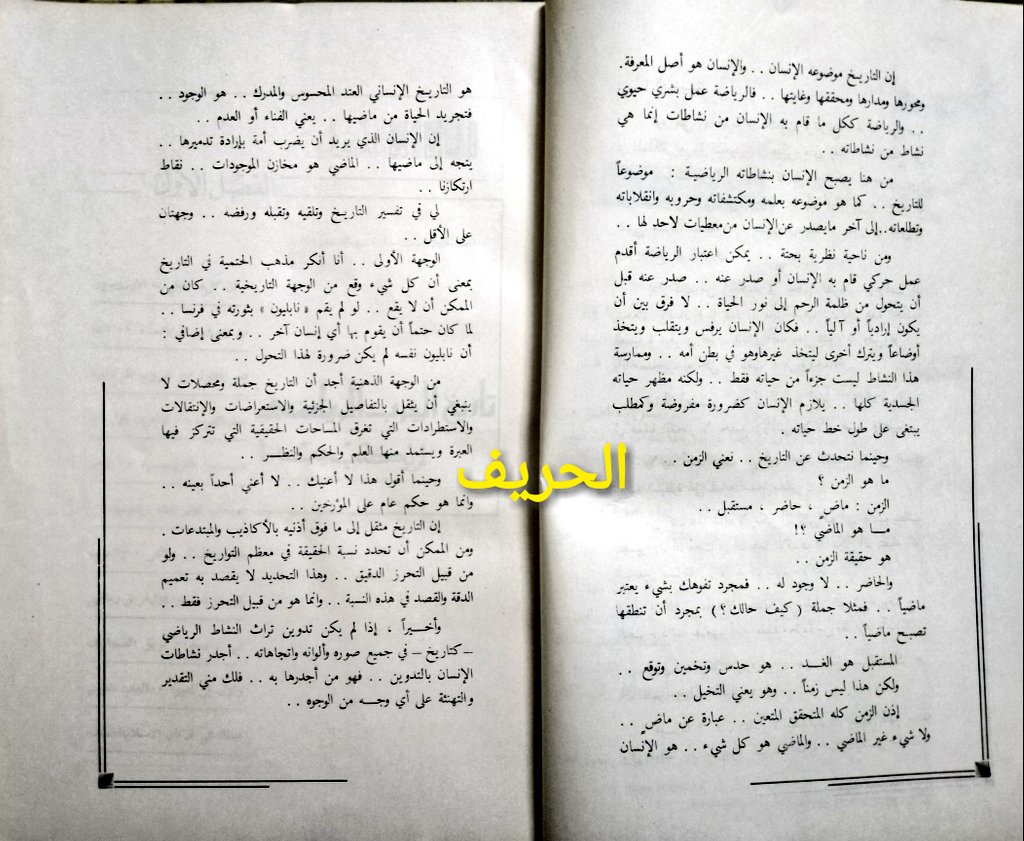 إن التاريخ موضوعه الإنسان . . والإنسان هو أصل المعرفة.
ومحورها ومدارها ومحققها وغايتها . . فالرياضة عمل بشري حيوي
. . والرياضة ككل ما قام به الإنسان من نشاطات إنما هي
نشاط من نشاطاته . .
من هنا يصبح الإنسان بنشاطاته الرياضية : موضوعاً
للتاريخ . . كما هو موضوعه بعلمه ومكتشفاته وحروبه وانقلاباته
وتطلعاته..إلى آخر مايصدر عن الإنسان من معطيات لاحد لها . .
ومن ناحية نظرية بحتة . . يمكن اعتبار الرياضة أقدم
عمل حركي قام به الإنسان أو صدر عنه . . صدر عنه قبل
أن يتحول من ظلمة الرحم إلى نور الحياة . . لا فرق بين أن
يكون إرادياً أو آلياً . . فكان الإنسان يرفس ويتقلب ويتخذ
أوضاعاً ويترك أخرى ليتخذ غيرهاوهو في بطن أمه . . وممارسة
هذا النشاط ليست جزءاً من حياته فقط . . ولكنه مظهر حياته
الجسدية كلها . . يلازم الإنسان كضرورة مفروضة وكمطلب
يبتغى على طول خط حياته .
وحينما نتحدث عن التاريخ . . نعني الزمن .
ما هو الزمن ؟
الزمن : ماضٍ ، حاضر ، مستقبل . .
مـــا هو الماضي ؟!
هو حقيقة الزمن . .
والحاضر . . لا وجود له . . فمجرد تفوهك بشيء يعتبر
ماضياً . . فمثلا جملة ( كيف حالك ؟ ) بمجرد أن تنطقها
تصبح ماضياً . .
المستقبل هو الغــد . . هو حدس وتخمين وتوقع . .
ولكن هذا ليس زمناً . . وهو يعني التخيل . .
إذن الزمن كله المتحقق المتعين . . عبارة عن ماضٍ . .
ولا شيء غير الماضي . . والماضي هو كل شيء . . هو الإنسان
هو التاريخ الإنساني العتد المحسوس والمدرك . . هو الوجود . .
فتجريد الحياة من ماضيها . . يعني الفناء أو العدم . .
إن الإنسان الذي يريد أن يضرب أمة بإرادة تدميرها . .
يتجه إلى ماضيها . . الماضي هو مخازن الموجودات . . نقاط
ارتكازنا . .
لي في تفسير التاريخ وتلقيه وتقبله ورفضه . . وجهتان
على الأقل . .
الوجهة الأولى . . أنا أنكر مذهب الحتمية في التاريخ
بمعنى أن كل شيء وقع من الوجهة التاريخية . . كان من
الممكن أن لا يقع . . لو لم يقم « نابليون » بثورته في فرنسا . .
لما كان حتماً أن يقوم بها أي إنسان آخر . . وبمعنى إضافي :
أن نابليون نفسه لم يكن ضرورة لهذا التحول . .
من الوجهة الذهنية أجد أن التاريخ جملة ومحصلات لا
ينبغي أن يثقل بالتفاصيل الجزئية والاستعراضات والإنتقالات
والاستطرادات التي تغرق المساحات الحقيقية التي تتركز فيها
العبرة ويستمد منها العلم والحكم والنظـــر . .
وحينما أقول هذا لا أعنيك . . لا أعني أحداً بعينه . .
وانما هو حكم عام على المؤرخين . .
إن التاريخ مثقل إلى ما فوق أذنيه بالأكاذيب والمبتدعات .
ومن الممكن أن تحدد نسبة الحقيقة في معظم التواريخ . . ولو
من قبيل التحرز الدقيق . . وهذا التحديد لا يقصد به تعميم
الدقة والقصد في هذه النسبة . . وانما هو من قبيل التحرز فقط . .
وأخـــيراً ، إذا لم يكن تدوين تراث النشاط الرياضي
ــ كتاريخ ــ في جميع صوره وألوانه واتجاهاته . . أجدر نشاطات
الإنسان بالتدوين . . فهو من أجدرها به . . فلك مني التقدير
والتهنئة على أي وجـــه من الوجوه . .
الحريف